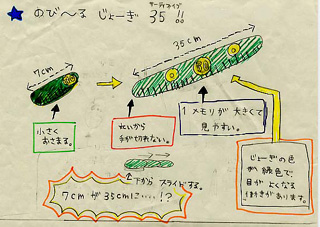 ★ のび〜る じょーぎ 35 !!
サーティファイブ
7cm
35cm
小さく
おさまる。
丸いから
手が切れない。
1メモリが大きくて
見やすい。
じょーぎの色
が緑色で、
目がよくなる
下からスライドする。
7cmが35cmに……!?